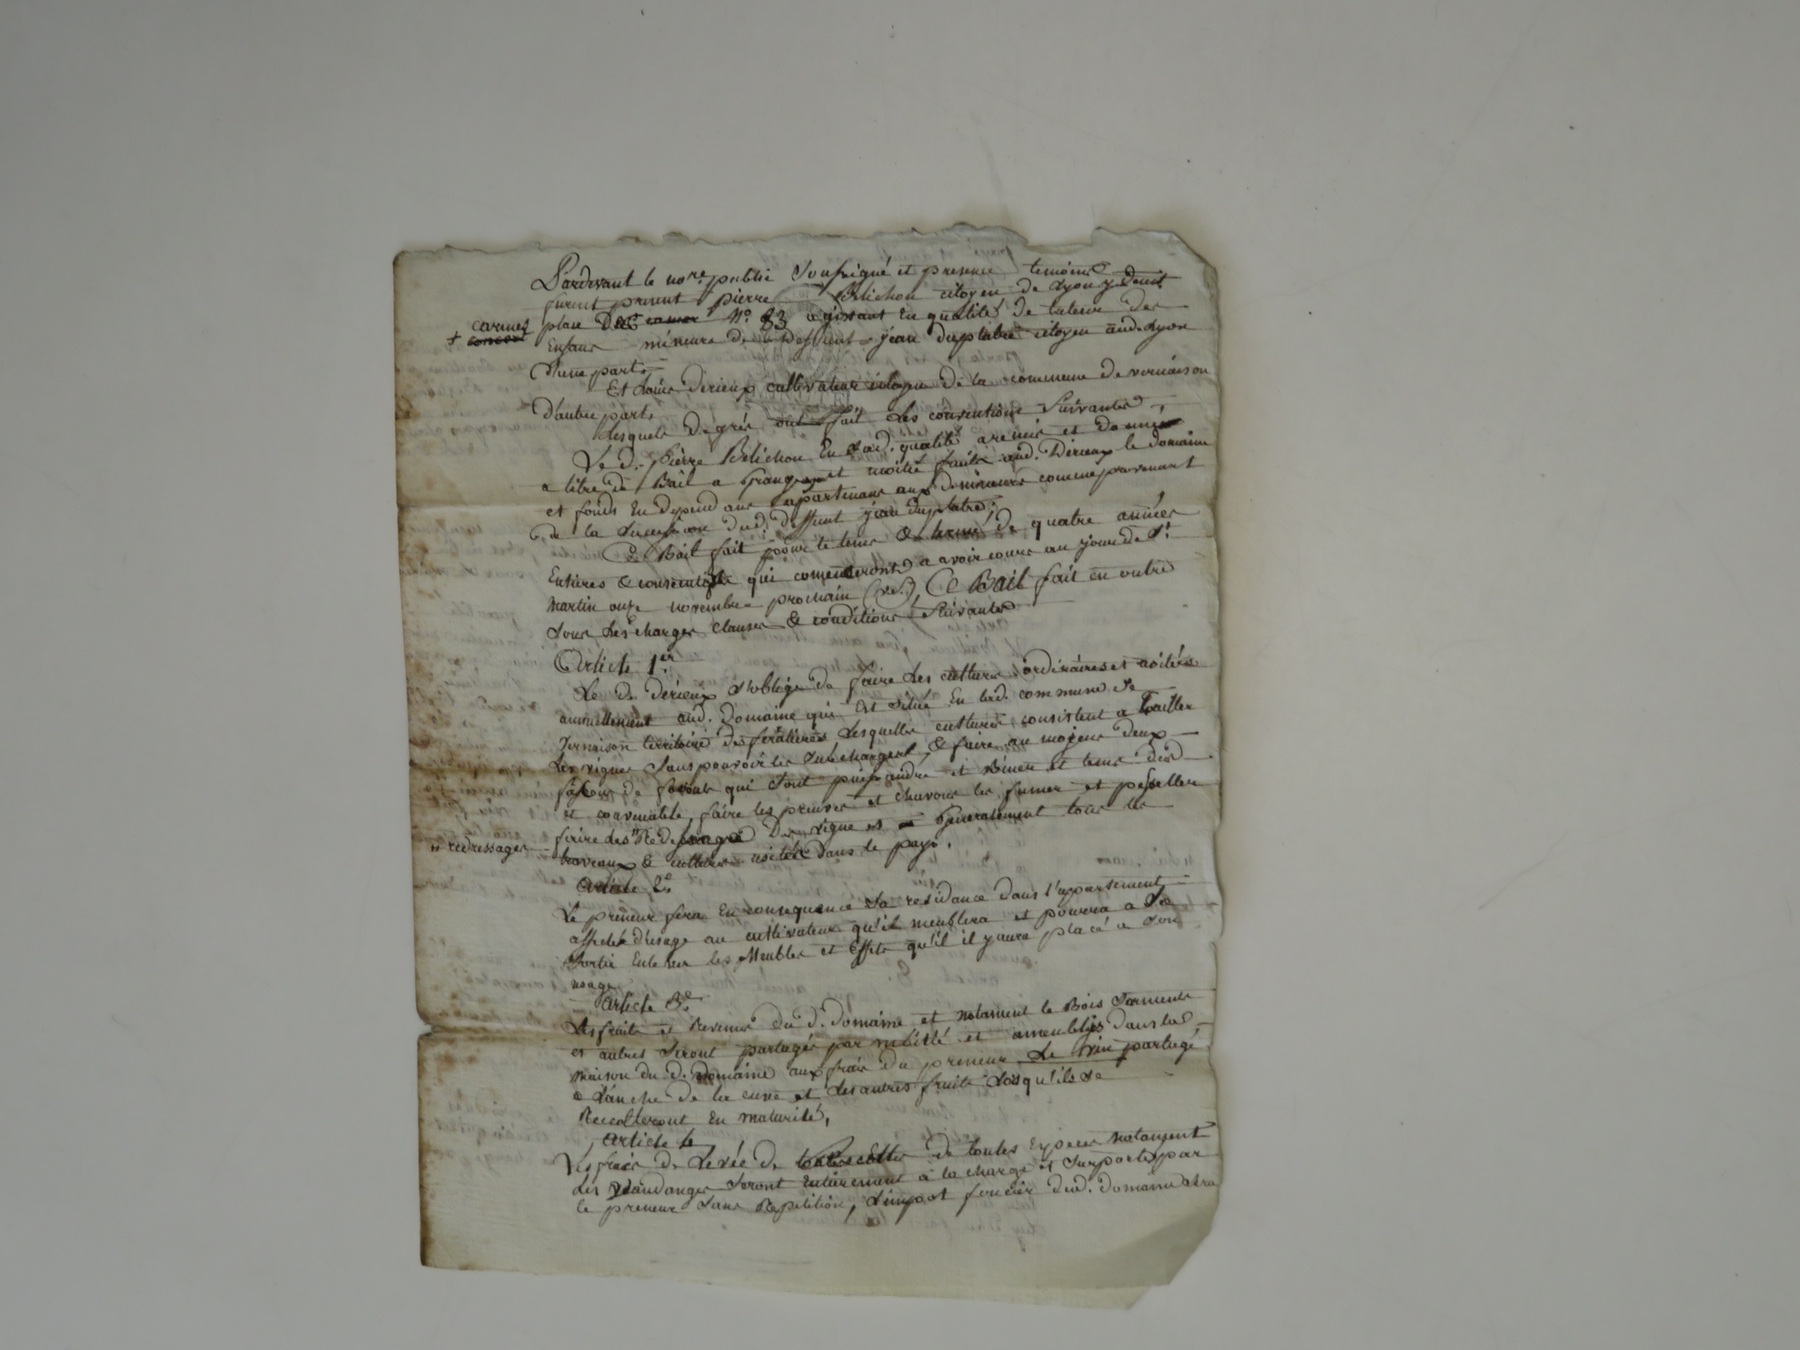 Pardevant le nore. public soussigné et presence temoins
furent present pierre Belichon citoyen de Lyon y demt
carmes place Des No. 83 agissant En qualité de tuteur des
Enfans mineurs de deffunt jean duplatre citoyen aud. Lyon
d'une part
Et Louis derieux cultivateur citoyen de la commune de vernaison
D'autre part,
lesquels de gré ont fait Les conventions suivantes,
Le d. pierre Belichon En sad. qualité a remis et donné
a titre de Bail a Grange et moitié fruits aud. Derieux le domaine
et fonds En dependans apartenans aux d. mineurs comme provenant
de la succession dud. deffunt jean duplatre,
Ce Bail fait pour le tems & terme de quatre années
Entieres & consecutive qui comenceront a avoir cours au jour de St
martin onze novembre prochain (), Ce Bail fait en outre
sous Les charges clauses & conditions suivantes
Article 1er
Le d. derieux s'oblige de faire Les cultures ordinaires et usitées
annuellement aud. Domaine qui Est situé En lad. commune de
vernaison territoire des Lesquelles cultures consistent a tailler
Les vignes sans pouvoir les surcharger, & faire au moyens deux
façons de qui sont et Biner et tems du
et convenable, faire les preuves et les fumer et
faire des De vigne et Generalement tous les
" redressages
travaux & cultures usitées dans le pays.
article 2e
Le preneur fera En consequence sa residance dans l'appartement
affecté d'usage au cultivateur qu'il meublera et pourra a sa
sortie Enlever les Meubles et Effets qu'il il y aura placé a son
usage
article 3e
Les fruits et Revenus du d. Domaine et notament le Bois sarments
et autres seront partagés par moitié et ameublés dans la
maison du d. Domaine aux frais du preneur Le vin partagé
a L'anche de la cuve et Les autres fruits Lorsqu'ils se
Recolteront En maturité,
article 4
Les frais de Levée de Recoltes de toutes Especes notament
Les vandanges seront Entierement a la charge et supportés par
le preneur sans Repetition, L'impot foncier dud. domaine sera